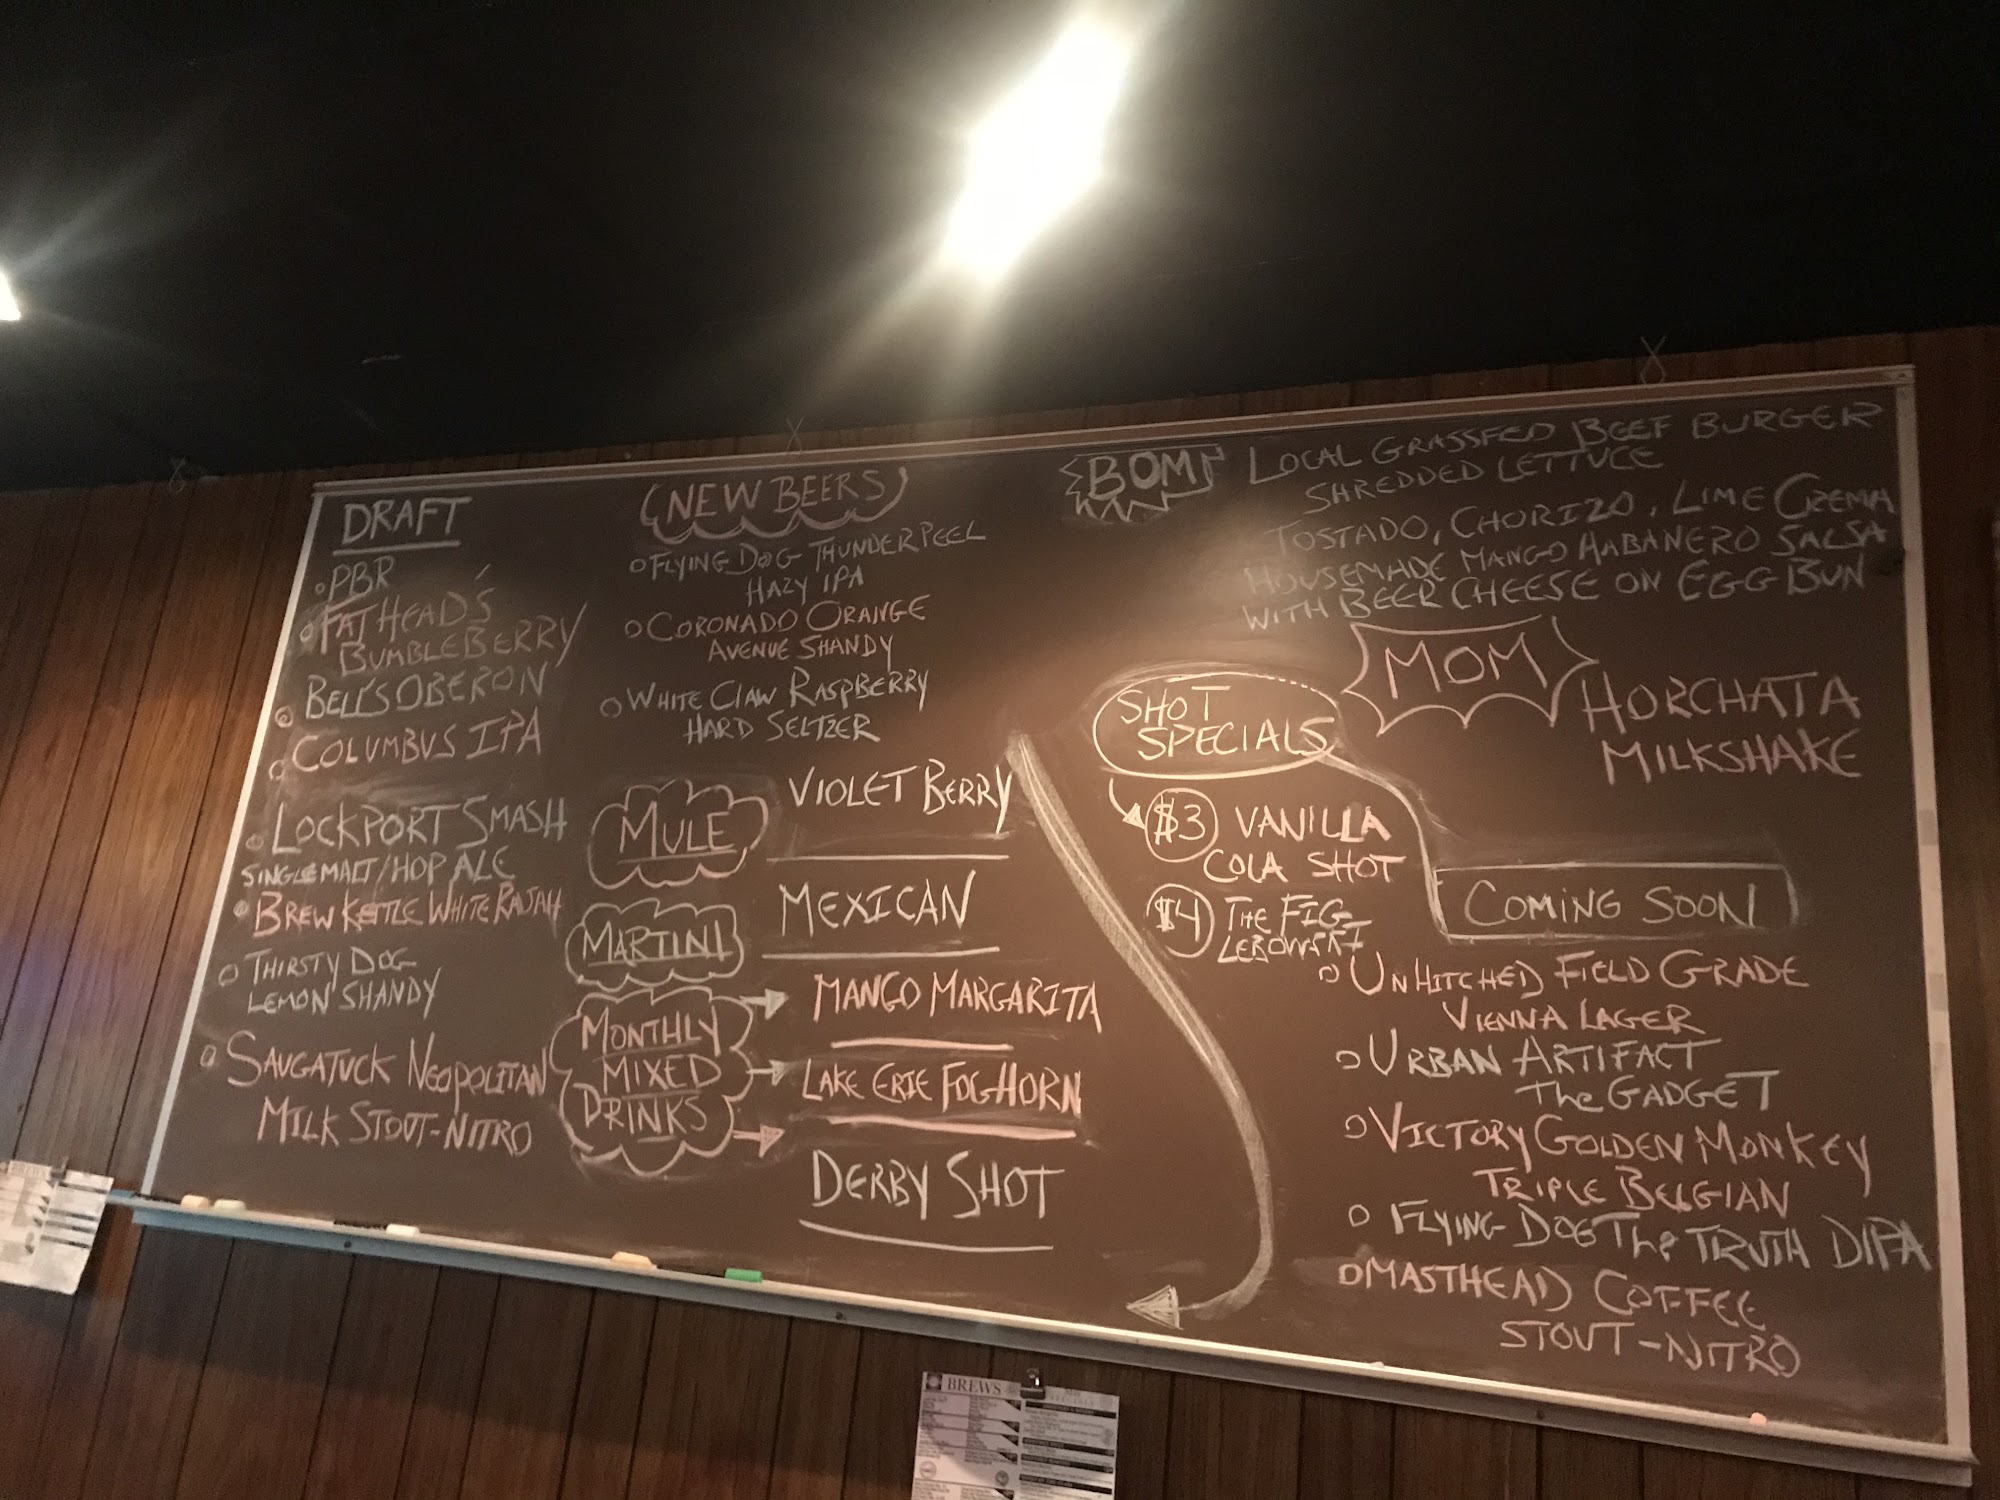 DRAFT
PBR
FATHEAD'S
BUMBLEBERRY
BELL'S OBERON
COLUMBUS IPA
LOCKPORT SMASH
SINGLE MALT/HOP ALE
BREW KETTLE WHITE RAJAH
THIRSTY DOG
LEMON SHANDY
SAUGATUCK NEOPOLITAN
MILK STOUT-NITRO
NEW BEERS
FLYING DOG THUNDERPEEL
HAZY IPA
CORONADO ORANGE
AVENUE SHANDY
WHITE CLAW RASPBERRY
HARD SELTZER
MULE
VIOLET BERRY
MARTINI
MEXICAN
MONTHLY
MIXED
DRINKS
MANGO MARGARITA
LAKE ERIE FOGHORN
DERBY SHOT
BOM
LOCAL GRASSFED BEEF BURGER
SHREDDED LETTUCE
TOSTADO, CHORIZO, LIME CREMA
HOUSEMADE MANGO HABANERO SALSA
WITH BEER CHEESE ON EGG BUN
MOM
HORCHATA
MILKSHAKE
SHOT
SPECIALS
$3 VANILLA
COLA SHOT
$4 THE FIG
LEBOWSKI
COMING SOON
UNHITCHED FIELD GRADE
VIENNA LAGER
URBAN ARTIFACT
THE GADGET
VICTORY GOLDEN MONKEY
TRIPLE BELGIAN
FLYING DOG THE TRUTH DIPA
MASTHEAD COFFEE
STOUT-NITRO
BREWS